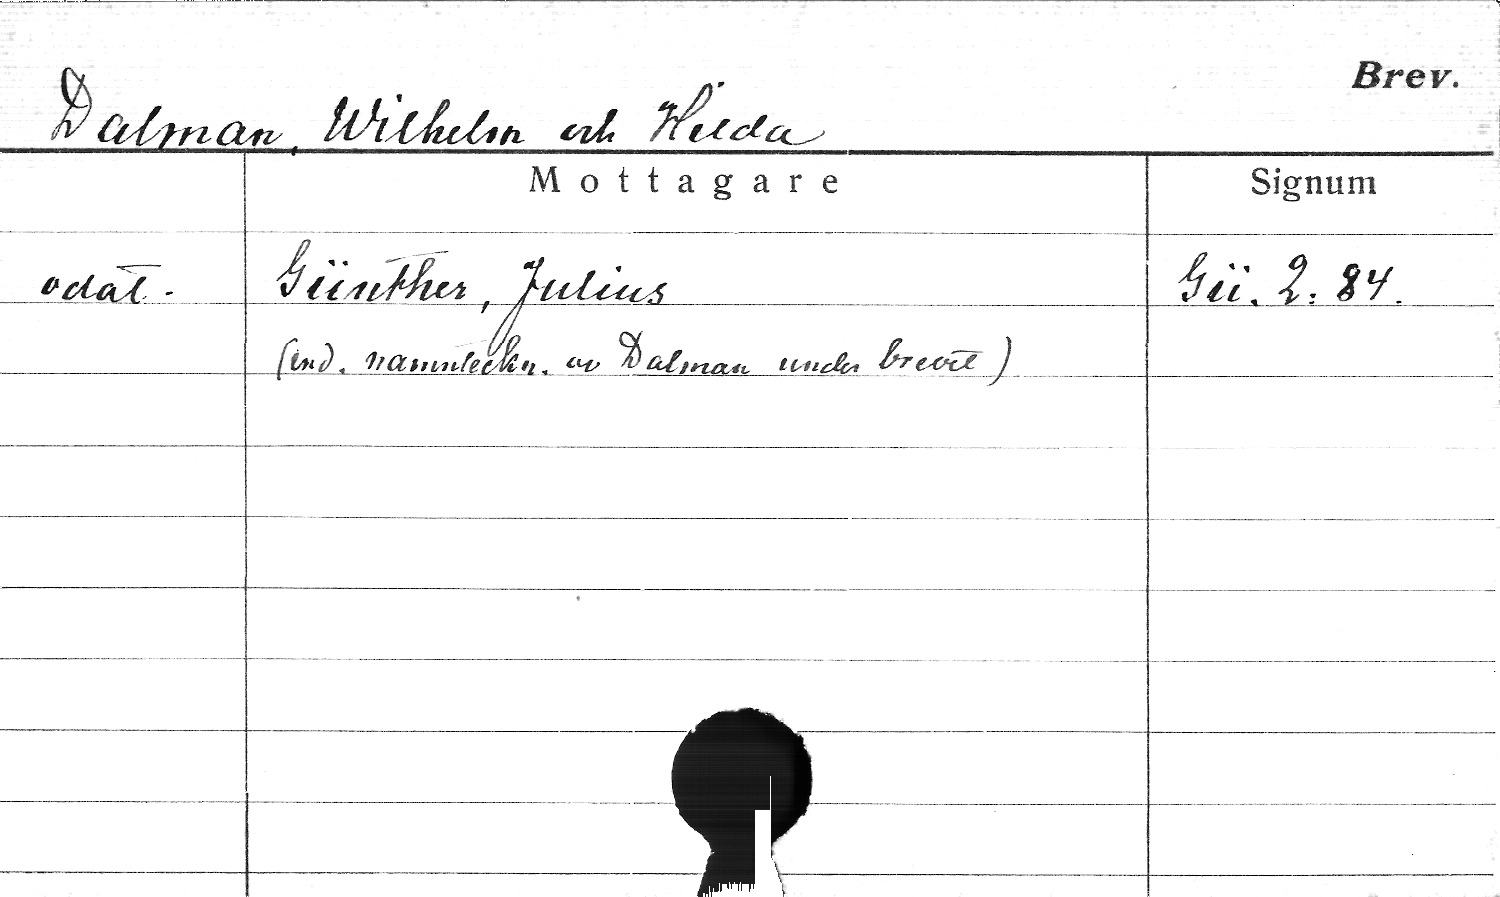 Brev.
Dalman, Wilhelm och Hilda
Mottagare Signum
odat. Günther, Julius Gü. 2: 84.
(end. namnteckn. av Dalman under brevet)